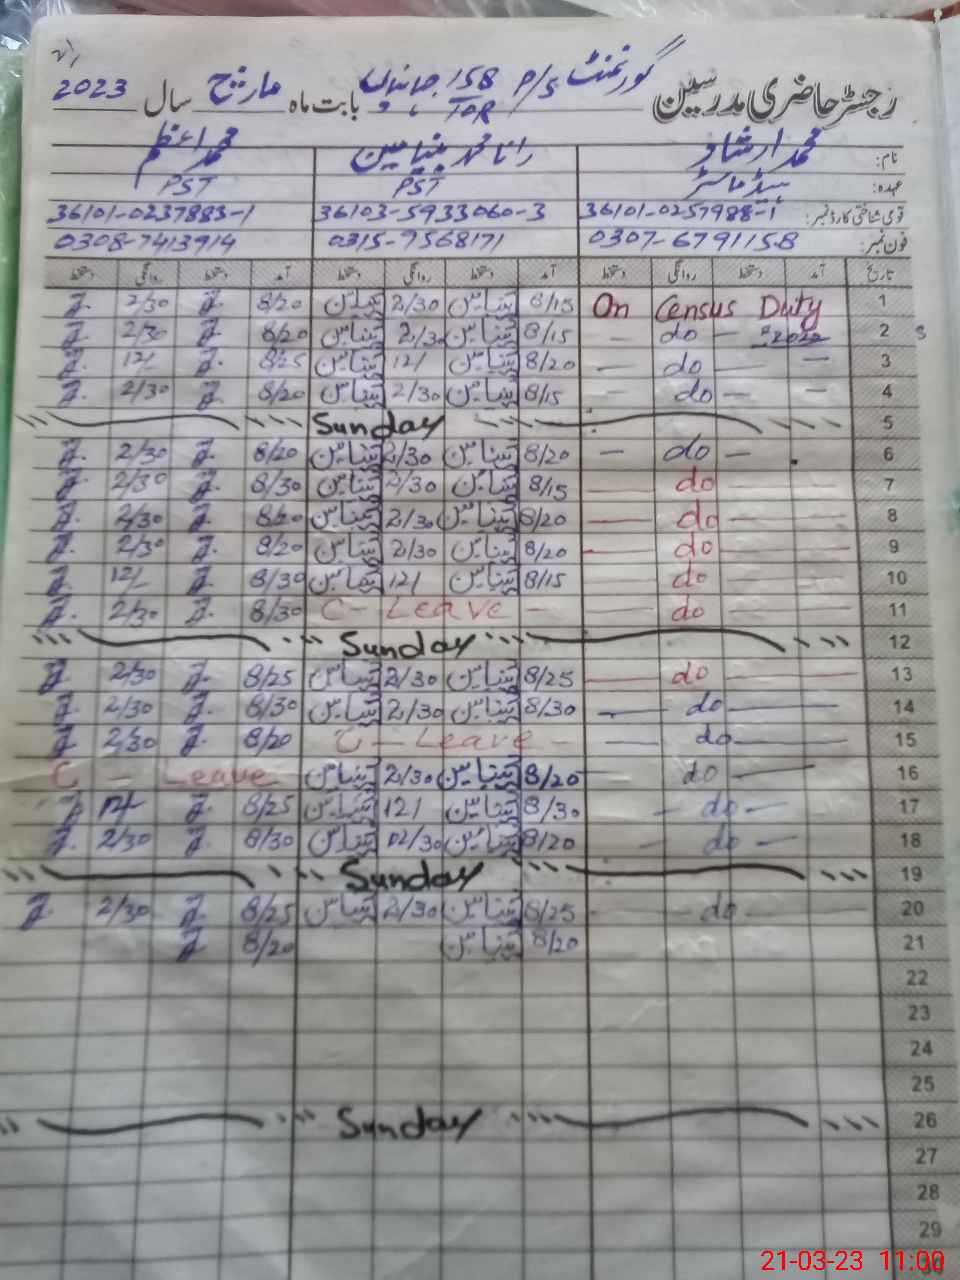 رجسٹر حاضری مدرسین گورنمنٹ P/S 158/10R بابت ماہ مارچ سال 2023
نام: محمد ارشاد رانا محمد بنیامین محمد اعظم
عہدہ: ہیڈ ماسٹر PST PST
قومی شناختی کارڈ نمبر: 36101-0257988-1 36103-5933060-3 36101-0237883-1
فون نمبر: 0307-6791158 0315-9568171 0308-7413914
تاریخ آمد دستخط روانگی دستخط آمد دستخط روانگی دستخط آمد دستخط روانگی دستخط
1 On Census Duty 8/15 بنیامین 2/30 بنیامین 8/20 2/30
2 2022 do 8/15 بنیامین 2/30 بنیامین 8/20 2/30
3 do 8/20 بنیامین 12/ بنیامین 8/25 12/
4 do 8/15 بنیامین 2/30 بنیامین 8/20 2/30
5 Sunday
6 do 8/20 بنیامین 2/30 بنیامین 8/20 2/30
7 do 8/15 بنیامین 2/30 بنیامین 8/30 2/30
8 do 8/20 بنیامین 2/30 بنیامین 8/20 2/30
9 do 8/20 بنیامین 2/30 بنیامین 8/20 2/30
10 do 8/15 بنیامین 12/ بنیامین 8/30 12/
11 do C- Leave 8/30 2/30
12 Sunday
13 do 8/25 بنیامین 2/30 بنیامین 8/25 2/30
14 do 8/30 بنیامین 2/30 بنیامین 8/30 2/30
15 do C- Leave 8/20 2/30
16 do 8/20 بنیامین 2/30 بنیامین C - Leave
17 do 8/30 بنیامین 12/ بنیامین 8/25 12/
18 do 8/20 بنیامین 2/30 بنیامین 8/30 2/30
19 Sunday
20 do 8/25 بنیامین 2/30 بنیامین 8/25 2/30
21 8/20 بنیامین 8/20
22
23
24
25
26 Sunday
27
28
29
21-03-23 11:00